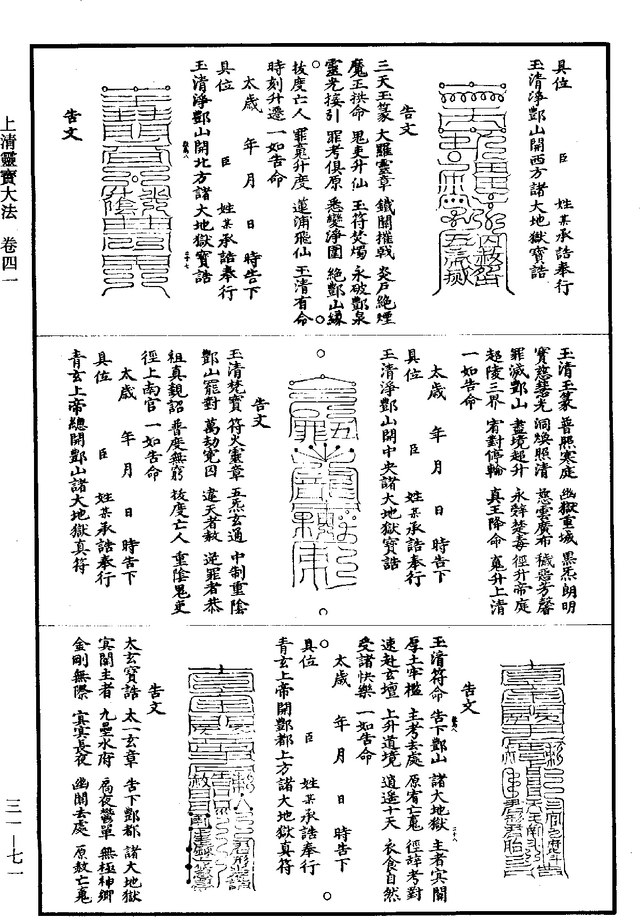 上清靈寶大法 卷四一
三一—七一
具位 臣 姓某承誥奉行
玉清淨酆山開西方諸大地獄寶誥
告文
三天玉篆 大羅靈章 鐵關摧戟 炎戶絕煙
魔王拱命 鬼吏升仙 玉符焚燭 永破酆泉
靈光接引 罪考俱原 悉變淨園 絕酆山緣
拔度亡人 罪竟升度 蓮浦飛仙 玉清有命
時刻升遷 一如告命
太歲 年 月 日 時告下
具位 臣 姓某承誥奉行
玉清淨酆山開北方諸大地獄寶誥
告文
玉清玉篆 普照寒庭 幽獄重城 黑炁朗明
寶慈慧光 洞煥照清 慈雲廣布 穢惡芳馨
罪滅酆山 盡境超升 永辭楚毒 徑升帝庭
超陵三界 宥對停輪 真王降命 魂升上清
一如告命
太歲 年 月 日 時告下
具位 臣 姓某承誥奉行
玉清淨酆山開中央諸大地獄寶誥
告文
玉清梵寶 符火靈章 五炁玄通 中制重陰
酆山罷對 萬劫冤囚 違天者赦 逆罪者恭
祖真親詔 普度無窮 拔度亡人 重陰鬼吏
徑上南宮 一如告命
太歲 年 月 日 時告下
具位 臣 姓某承誥奉行
青玄上帝總開酆山諸大地獄真符
告文
玉清符命 告下酆山 諸大地獄 主者冥關
厚土牢檻 主考去處 原宥亡魂 徑辭考對
速赴玄壇 上升道境 逍遙十天 衣食自然
受諸快樂 一如告命
太歲 年 月 日 時告下
具位 臣 姓某承誥奉行
青玄上帝開酆都上方諸大地獄真符
告文
太玄寶誥 太一玄章 告下酆都 諸大地獄
冥關主者 九壘水府 扃夜鬱單 無極神鄉
金剛無際 冥冥長夜 幽關去處 原赦亡魂